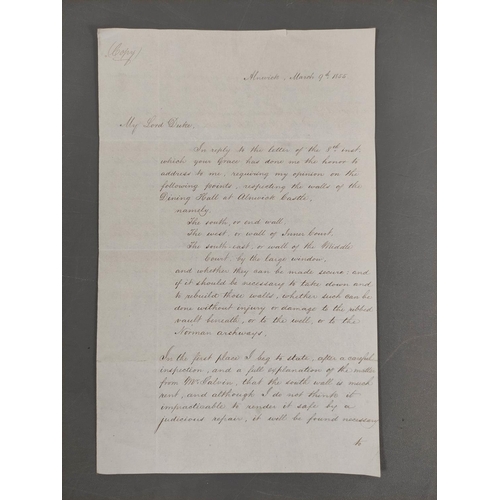 (Copy)
Alnwick, March 9th 1855
My Lord Duke,
In reply to the letter of the 8th inst.
which your Grace has done me the honor to
address to me, requiring my opinion on the
following points, respecting the walls of the
Dining Hall at Alnwick Castle,
namely
The south, or end wall,
The west, or wall of Inner Court,
The south-east, or wall of the Middle
Court, by the large window,
and whether they can be made secure: and
if it should be necessary to take down and
to rebuild those walls, whether such can be
done without injury or damage to the ribbed
vault beneath, or to the well, or to the
Norman archways.
In the first place I beg to state, after a careful
inspection, and a full explanation of the matter
from Mr Salvin, that the south wall is much
rent, and although I do not think it
impracticable to render it safe by a
judicious repair, it will be found necessary
to